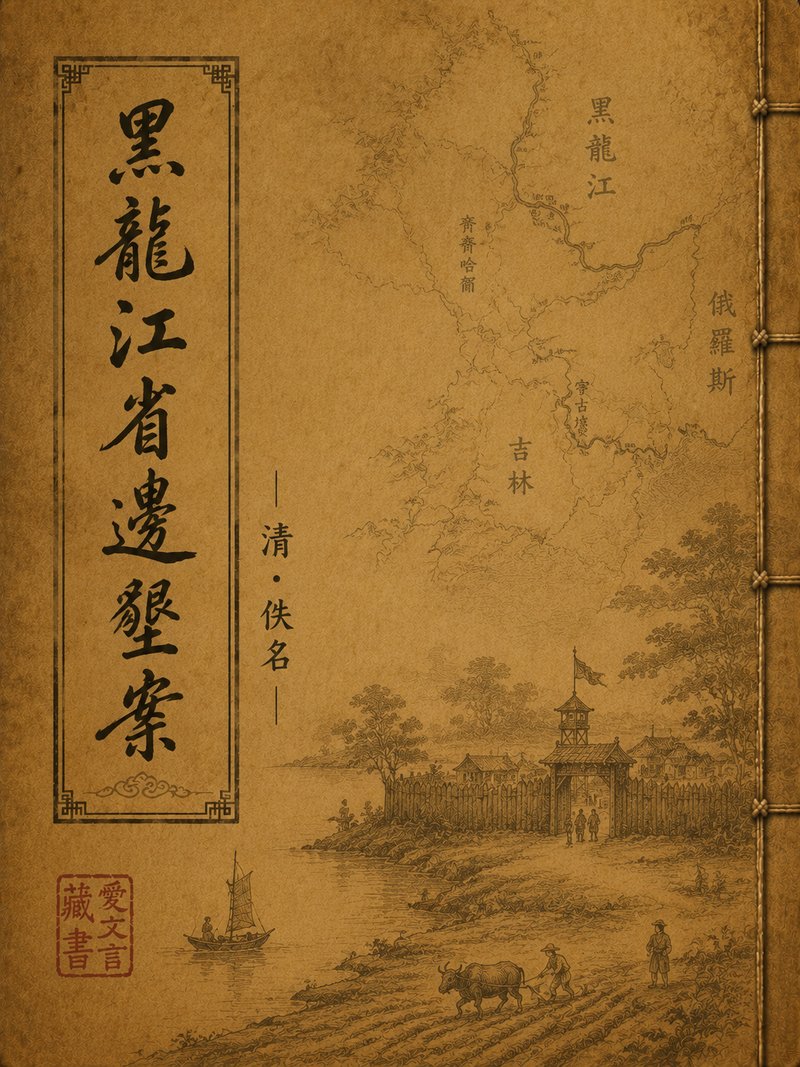 黑龍江省邊墾案
清·佚名
黑龍江
齊齊哈爾
俄羅斯
寧古塔
吉林
愛文言
藏書